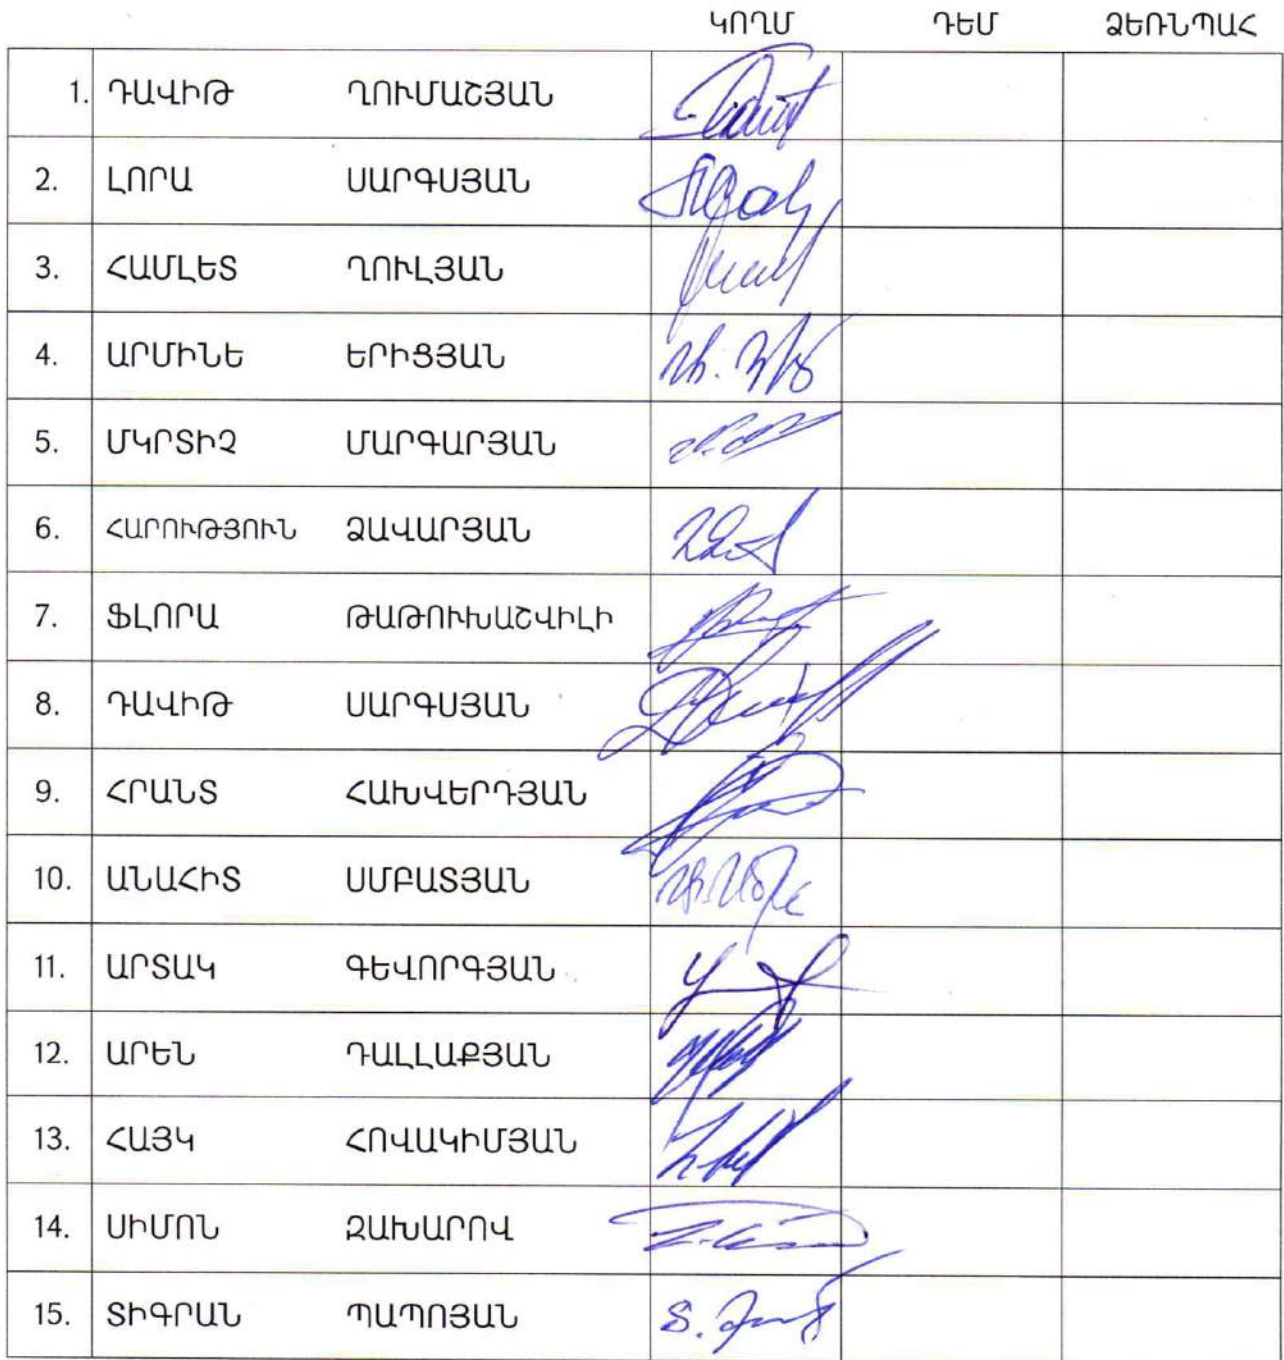 ԿՈՂՄ ԴԵՄ ՁԵՌՆՊԱՀ
1. ԴԱՎԻԹ ՂՈՒՄԱՇՅԱՆ
2. ԼՈՐԱ ՍԱՐԳՍՅԱՆ
3. ՀԱՄԼԵՏ ՂՈՒԼՅԱՆ
4. ԱՐՄԻՆԵ ԵՐԻՑՅԱՆ
5. ՄԿՐՏԻՉ ՄԱՐԳԱՐՅԱՆ
6. ՀԱՐՈՒԹՅՈՒՆ ՁԱՎԱՐՅԱՆ
7. ՖԼՈՐԱ ԹԱԹՈՒԽԱՇՎԻԼԻ
8. ԴԱՎԻԹ ՍԱՐԳՍՅԱՆ
9. ՀՐԱՆՏ ՀԱԽՎԵՐԴՅԱՆ
10. ԱՆԱՀԻՏ ՍՄԲԱՏՅԱՆ
11. ԱՐՏԱԿ ԳԵՎՈՐԳՅԱՆ
12. ԱՐԵՆ ԴԱԼԼԱՔՅԱՆ
13. ՀԱՅԿ ՀՈՎԱԿԻՄՅԱՆ
14. ՍԻՄՈՆ ԶԱԽԱՐՈՎ
15. ՏԻԳՐԱՆ ՊԱՊՈՅԱՆ